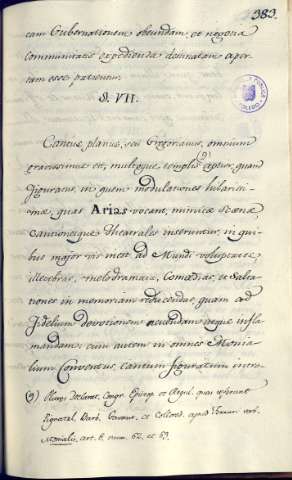 383.
eam Gubernationem obeundam, et negotia
communitatis expedienda destinatam aper-
tam esse patiuntur.
§. VII.
Cantus planus, seu Gregorianus, omnium
gravissimus est, multoque templis aptior, quam
figuratus, in quem modulationes hilarissi-
mæ, quas Arias vocant, mimicæ Scænæ,
Cantionesque theatrales inseruntur, in qui-
bus major vis inest ad Mundi voluptates,
illecebras, melodramata, Comœdias, et Salta-
tiones in memoriam reducendas, quam ad
Fidelium devotionem acuendam, atque infla-
mandam: cum autem in omnes Monia-
lium Conventus, Cantum figuratum intro-
Plures Declarat. Congr. Episcop. et Regul. quas referunt
Pignatel. Barb. Ventur. et Colored. apud Ferrar. verb.
Monialis, art. 6. num. 62. et 63.